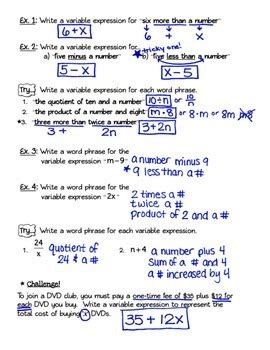 Ex. 1: Write a variable expression for six more than a number
6 + x
6+x
Ex. 2: Write a variable expression for
* tricky one!
a) five minus a number b) five less than a number
5 - x
x - 5
Try Write a variable expression for each word phrase.
1. the quotient of ten and a number 10÷n or 10/n
2. the product of a number and eight m·8 or 8·m or 8m
*3. three more than twice a number
3 + 2n
3+2n
Ex. 3: Write a word phrase for the
variable expression -m-9-
a number minus 9
* 9 less than a #
Ex. 4: Write a word phrase for the
variable expression -2x-
2 times a #
twice a #
product of 2 and a #
Try Write a word phrase for each variable expression.
1. 24/x quotient of 24 & a #
2. n+4 a number plus 4
sum of a # and 4
a # increased by 4
* Challenge!
To join a DVD club, you must pay a one-time fee of $35 plus $12 for
each DVD you buy. Write a variable expression to represent the
total cost of buying x DVDs.
35 + 12x